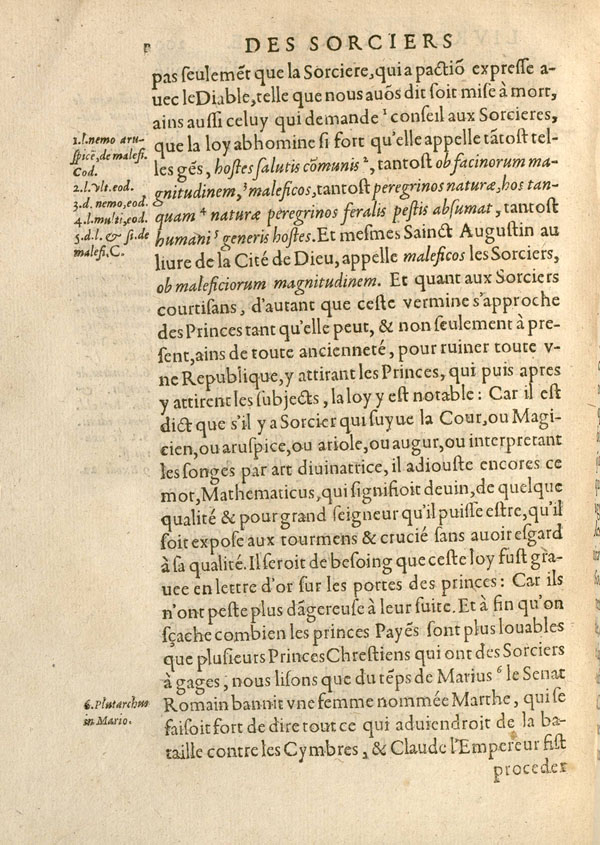 DES SORCIERS
pas seulemēt que la Sorciere, qui a pactiō expresse a-
uec le Diable, telle que nous auōs dit soit mise à mort,
ains aussi celuy qui demande ¹ conseil aux Sorcieres,
que la loy abhomine si fort qu'elle appelle tātost tel-
les gēs, hostes salutis cōmunis ², tantost ob facinorum ma-
gnitudinem, ³ maleficos, tantost peregrinos naturæ, hos tan-
quam ⁴ naturæ peregrinos feralis pestis absumat, tantost
humani ⁵ generis hostes. Et mesmes Sainct Augustin au
liure de la Cité de Dieu, appelle maleficos les Sorciers,
ob maleficiorum magnitudinem. Et quant aux Sorciers
courtisans, d'autant que ceste vermine s'approche
des Princes tant qu'elle peut, & non seulement à pre-
sent, ains de toute ancienneté, pour ruiner toute v-
ne Republique, y attirant les Princes, qui puis apres
y attirent les subiects, la loy y est notable: Car il est
dict que s'il y a Sorcier qui suyue la Cour, ou Magi-
cien, ou aruspice, ou ariole, ou augur, ou interpretant
les songes par art diuinatrice, il adiouste encores ce
mot, Mathematicus, qui signifioit deuin, de quelque
qualité & pour grand seigneur qu'il puisse estre, qu'il
soit expose aux tourmens & crucié sans auoir esgard
à sa qualité. Il seroit de besoing que ceste loy fust gra-
uee en lettre d'or sur les portes des princes: Car ils
n'ont peste plus dāgereuse à leur suite. Et à fin qu'on
sçache combien les princes Payēs sont plus louables
que plusieurs Princes Chrestiens qui ont des Sorciers
à gages, nous lisons que du tēps de Marius ⁶ le Senat
Romain bannit vne femme nommée Marthe, qui se
faisoit fort de dire tout ce qui aduiendroit de la ba-
taille contre les Cymbres, & Claude l'Empereur fist
proceder
1.l. nemo aru-
spicē, de malefi.
Cod.
2.l. vlt. eod.
3.d. nemo, eod.
4.l. multi, eod.
5.d.l. & si. de
malefi, C.
6. Plutarchus
in Mario.